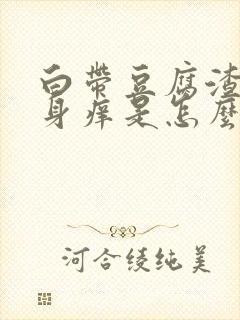 白带豆腐渣
身痒是怎麼
河合绫纯美